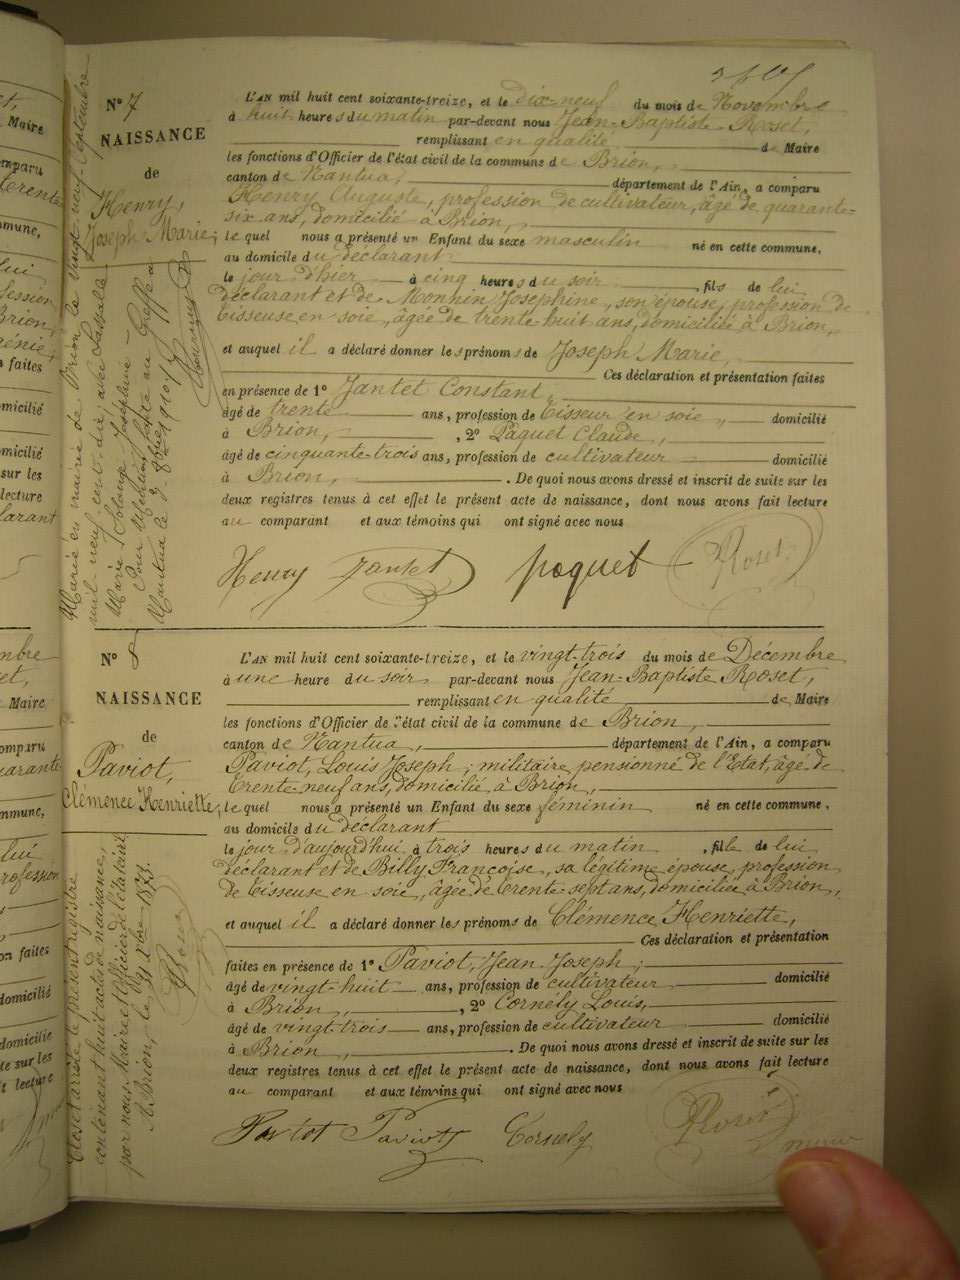 N° 7
NAISSANCE
de
Henry,
Joseph Marie;
Marié en mairie de Brion le vingt-neuf Septembre
mil neuf cent dix avec
Marie Solange Joséphine
Pour mention faite au Greffe à
Nantua le 1910
L'AN mil huit cent soixante-treize, et le dix-neuf du mois de Novembre
à huit heures du matin par-devant nous Jean-Baptiste Roset,
remplissant en qualité de Maire
les fonctions d'Officier de l'état civil de la commune de Brion,
canton de Nantua, département de l'Ain, a comparu
Henry Auguste, profession de cultivateur, âgé de quarante-
six ans, domicilié à Brion,
lequel nous a présenté un Enfant du sexe masculin né en cette commune,
au domicile du déclarant
le jour d'hier à cinq heures du soir, fils de lui
déclarant et de Monnin Josephine, son épouse, profession de
tisseuse en soie, âgée de trente-huit ans, domiciliée à Brion,
et auquel il a déclaré donner les prénoms de Joseph Marie,
Ces déclaration et présentation faites
en présence de 1° Jantet Constant,
âgé de trente ans, profession de tisseur en soie, domicilié
à Brion, , 2° Paquet Claude,
âgé de cinquante-trois ans, profession de cultivateur domicilié
à Brion, . De quoi nous avons dressé et inscrit de suite sur les
deux registres tenus à cet effet le présent acte de naissance, dont nous avons fait lecture
au comparant et aux témoins qui ont signé avec nous
Henry Jantet paquet Roset
N° 8
NAISSANCE
de
Paviot,
Clémence Henriette;
Clos et arrêté le présent registre
contenant huit actes de naissance,
par nous, Maire et Officier de l'état civil
A Brion, le 31 Xbre 1873.
Roset
L'AN mil huit cent soixante-treize, et le vingt-trois du mois de Décembre
à une heure du soir par-devant nous Jean-Baptiste Roset,
remplissant en qualité de Maire
les fonctions d'Officier de l'état civil de la commune de Brion,
canton de Nantua, département de l'Ain, a comparu
Paviot, Louis Joseph, militaire pensionné de l'Etat, âgé de
trente-neuf ans, domicilié à Brion,
lequel nous a présenté un Enfant du sexe féminin né en cette commune,
au domicile du déclarant
le jour d'aujourd'hui à trois heures du matin, fille de lui
déclarant et de Billy Françoise, sa légitime épouse, profession
de tisseuse en soie, âgée de trente-sept ans, domiciliée à Brion,
et auquel il a déclaré donner les prénoms de Clémence Henriette,
Ces déclaration et présentation
faites en présence de 1° Paviot, Jean-Joseph;
âgé de vingt-huit ans, profession de cultivateur domicilié
à Brion, , 2° Cornély Louis,
âgé de vingt-trois ans, profession de cultivateur domicilié
à Brion, . De quoi nous avons dressé et inscrit de suite sur les
deux registres tenus à cet effet le présent acte de naissance, dont nous avons fait lecture
au comparant et aux témoins qui ont signé avec nous
Paviot Paviot Cornely Roset
maire